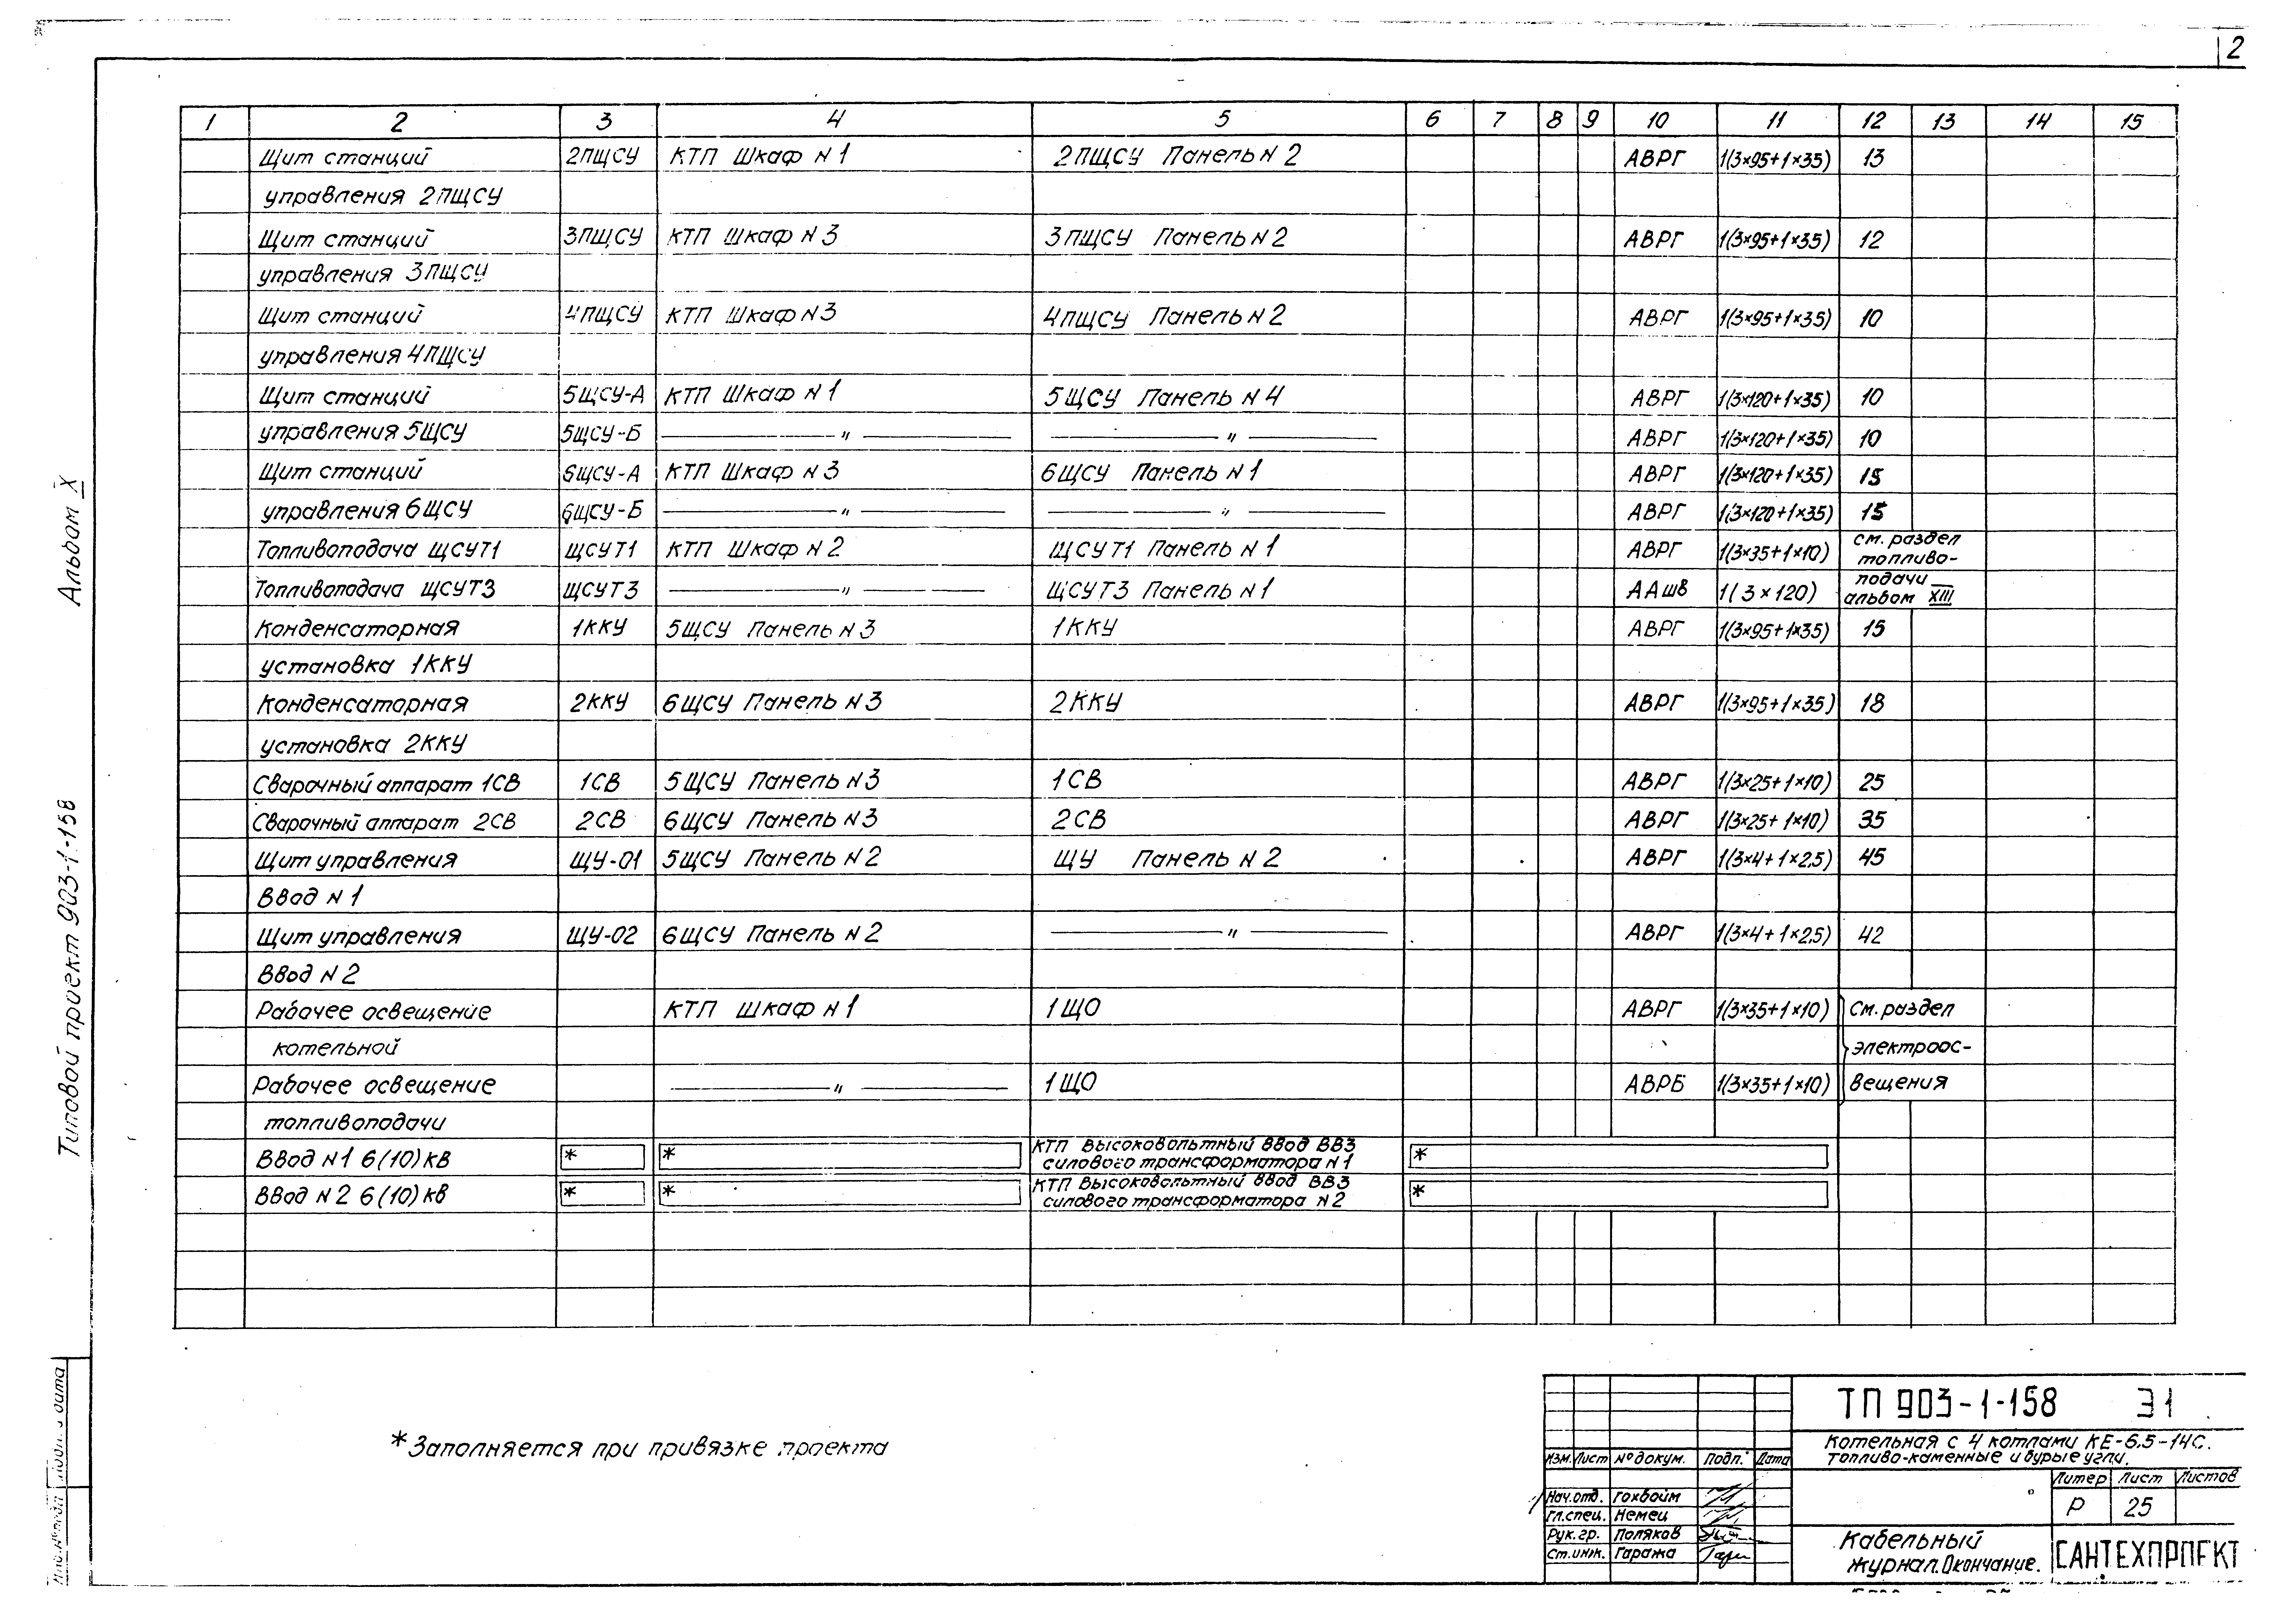 2
1 2 3 4 5 6 7 8 9 10 11 12 13 14 15
Щит станций 2ПЩСУ КТП Шкаф N1 2ПЩСУ Панель N2 АВРГ 1(3×95+1×35) 13
управления 2ПЩСУ
Щит станций 3ПЩСУ КТП Шкаф N3 3ПЩСУ Панель N2 АВРГ 1(3×95+1×35) 12
управления 3ПЩСУ
Щит станций 4ПЩСУ КТП Шкаф N3 4ПЩСУ Панель N2 АВРГ 1(3×95+1×35) 10
управления 4ПЩСУ
Щит станций 5ЩСУ-А КТП Шкаф N1 5ЩСУ Панель N4 АВРГ 1(3×120+1×35) 10
управления 5ЩСУ 5ЩСУ-Б — " — — " — АВРГ 1(3×120+1×35) 10
Щит станций 6ЩСУ-А КТП Шкаф N3 6ЩСУ Панель N1 АВРГ 1(3×120+1×35) 15
управления 6ЩСУ 6ЩСУ-Б — " — — " — АВРГ 1(3×120+1×35) 15
Топливоподача ЩСУТ1 ЩСУТ1 КТП Шкаф N2 ЩСУТ1 Панель N1 АВРГ 1(3×35+1×10) см. раздел
топливо-
Топливоподача ЩСУТ3 ЩСУТ3 — " — ЩСУТ3 Панель N1 ААшв 1(3×120) подачи
альбом XIII
Конденсаторная 1ККУ 5ЩСУ Панель N3 1ККУ АВРГ 1(3×95+1×35) 15
установка 1ККУ
Конденсаторная 2ККУ 6ЩСУ Панель N3 2ККУ АВРГ 1(3×95+1×35) 18
установка 2ККУ
Сварочный аппарат 1СВ 1СВ 5ЩСУ Панель N3 1СВ АВРГ 1(3×25+1×10) 25
Сварочный аппарат 2СВ 2СВ 6ЩСУ Панель N3 2СВ АВРГ 1(3×25+1×10) 35
Щит управления ЩУ-01 5ЩСУ Панель N2 ЩУ Панель N2 АВРГ 1(3×4+1×2,5) 45
Ввод N1
Щит управления ЩУ-02 6ЩСУ Панель N2 — " — АВРГ 1(3×4+1×2,5) 42
Ввод N2
Рабочее освещение КТП Шкаф N1 1ЩО АВРГ 1(3×35+1×10) См. раздел
котельной электроос-
Рабочее освещение — " — 1ЩО АВРБ 1(3×35+1×10) вещения
топливоподачи
Ввод N1 6(10)кв * * КТП Высоковольтный ввод ВВЗ *
силового трансформатора N1
Ввод N2 6(10)кв * * КТП Высоковольтный ввод ВВЗ *
силового трансформатора N2
*Заполняется при привязке проекта
Альбом X
Типовой проект 903-1-158
ТП 903-1-158 Э1
Котельная с 4 котлами КЕ-6,5-14С.
Топливо-каменные и бурые угли.
Изм. Лист № докум. Подп. Дата
Литер Лист Листов
Р 25
Нач.отд. Гохбойм
Гл.спец. Немец
Рук.гр. Поляков
Ст.инж. Гаража
Кабельный
журнал. Окончание.
САНТЕХПРОЕКТ